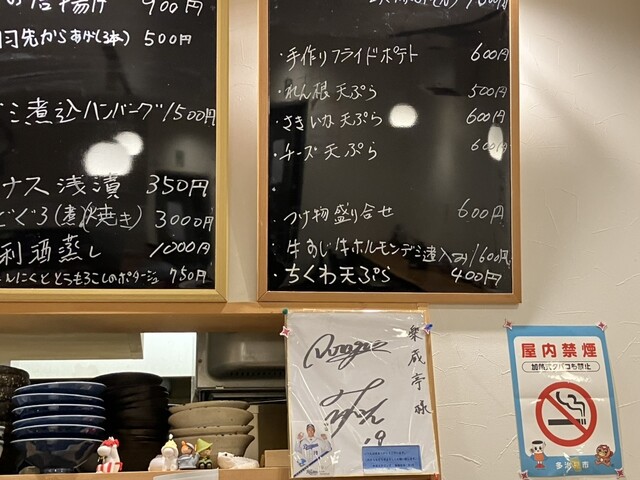 揚げ 900円
羽先からあげ(3本) 500円
ミ煮込ハンバーグ1500円
ナス浅漬 350円
どぐろ(煮)(焼き) 3000円
利酒蒸し 1000円
んにくととうもろこしのポタージュ 750円
・手作りフライドポテト 600円
・れん根天ぷら 500円
・さきいか天ぷら 600円
・チーズ天ぷら 600円
・つけ物盛り合せ 600円
・牛すじ牛ホルモンデミ煮込み1600円
・ちくわ天ぷら 400円
楽成亭様
19
屋内禁煙
加熱式タバコも禁止
多治見市